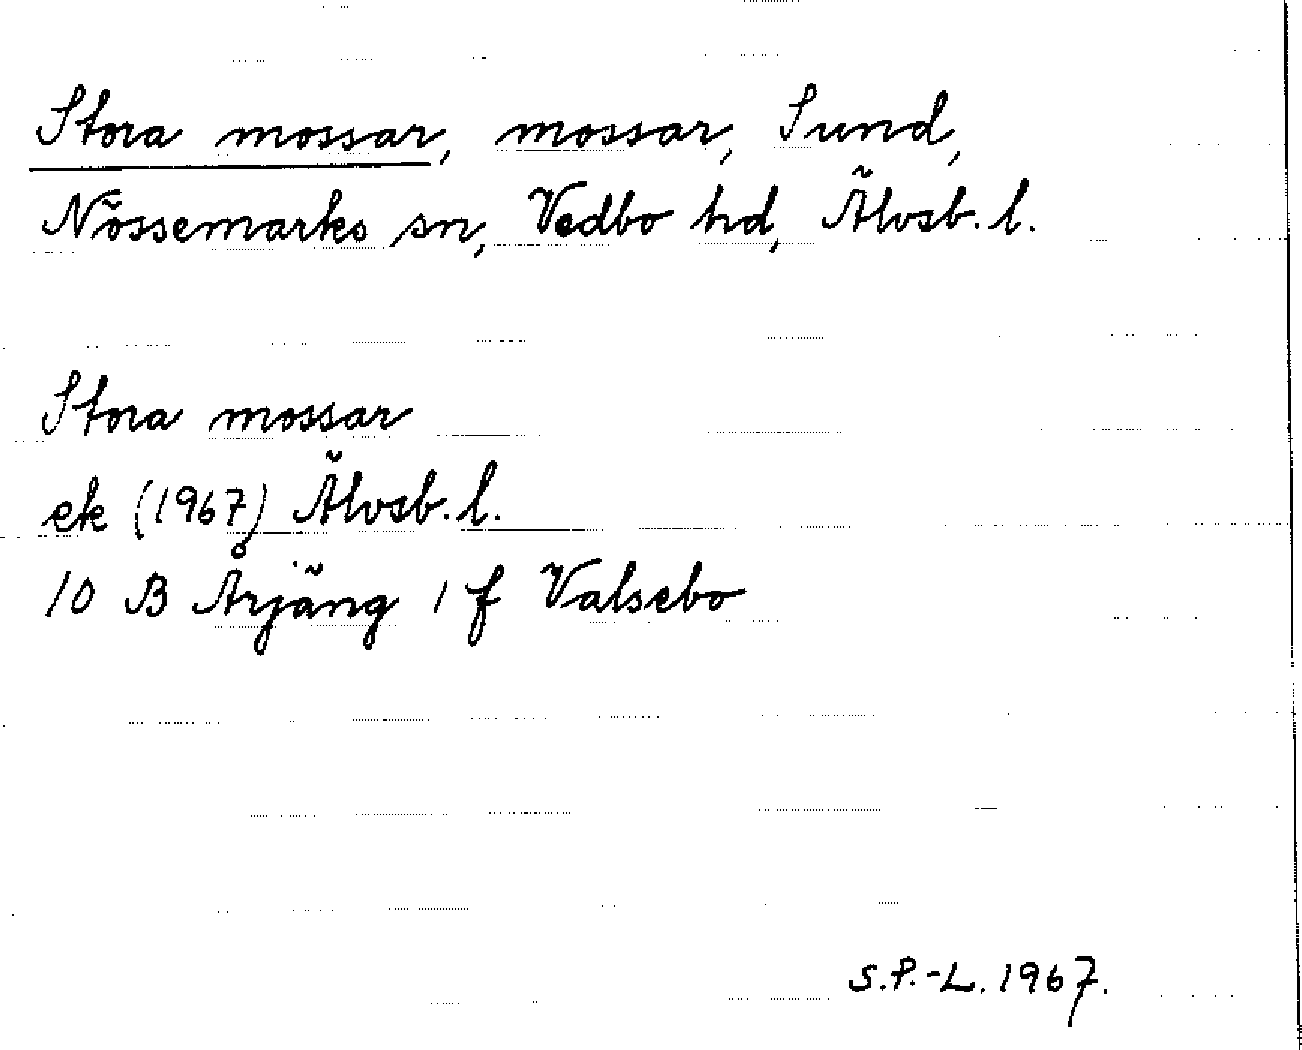 Stora mossar, mossar, Sund,
Nössemarks sn, Vedbo hd, Älvsb. l.
Stora mossar
ek (1967) Älvsb. l.
10 B Årjäng 1 f Valsebo
S.P.-L. 1967.